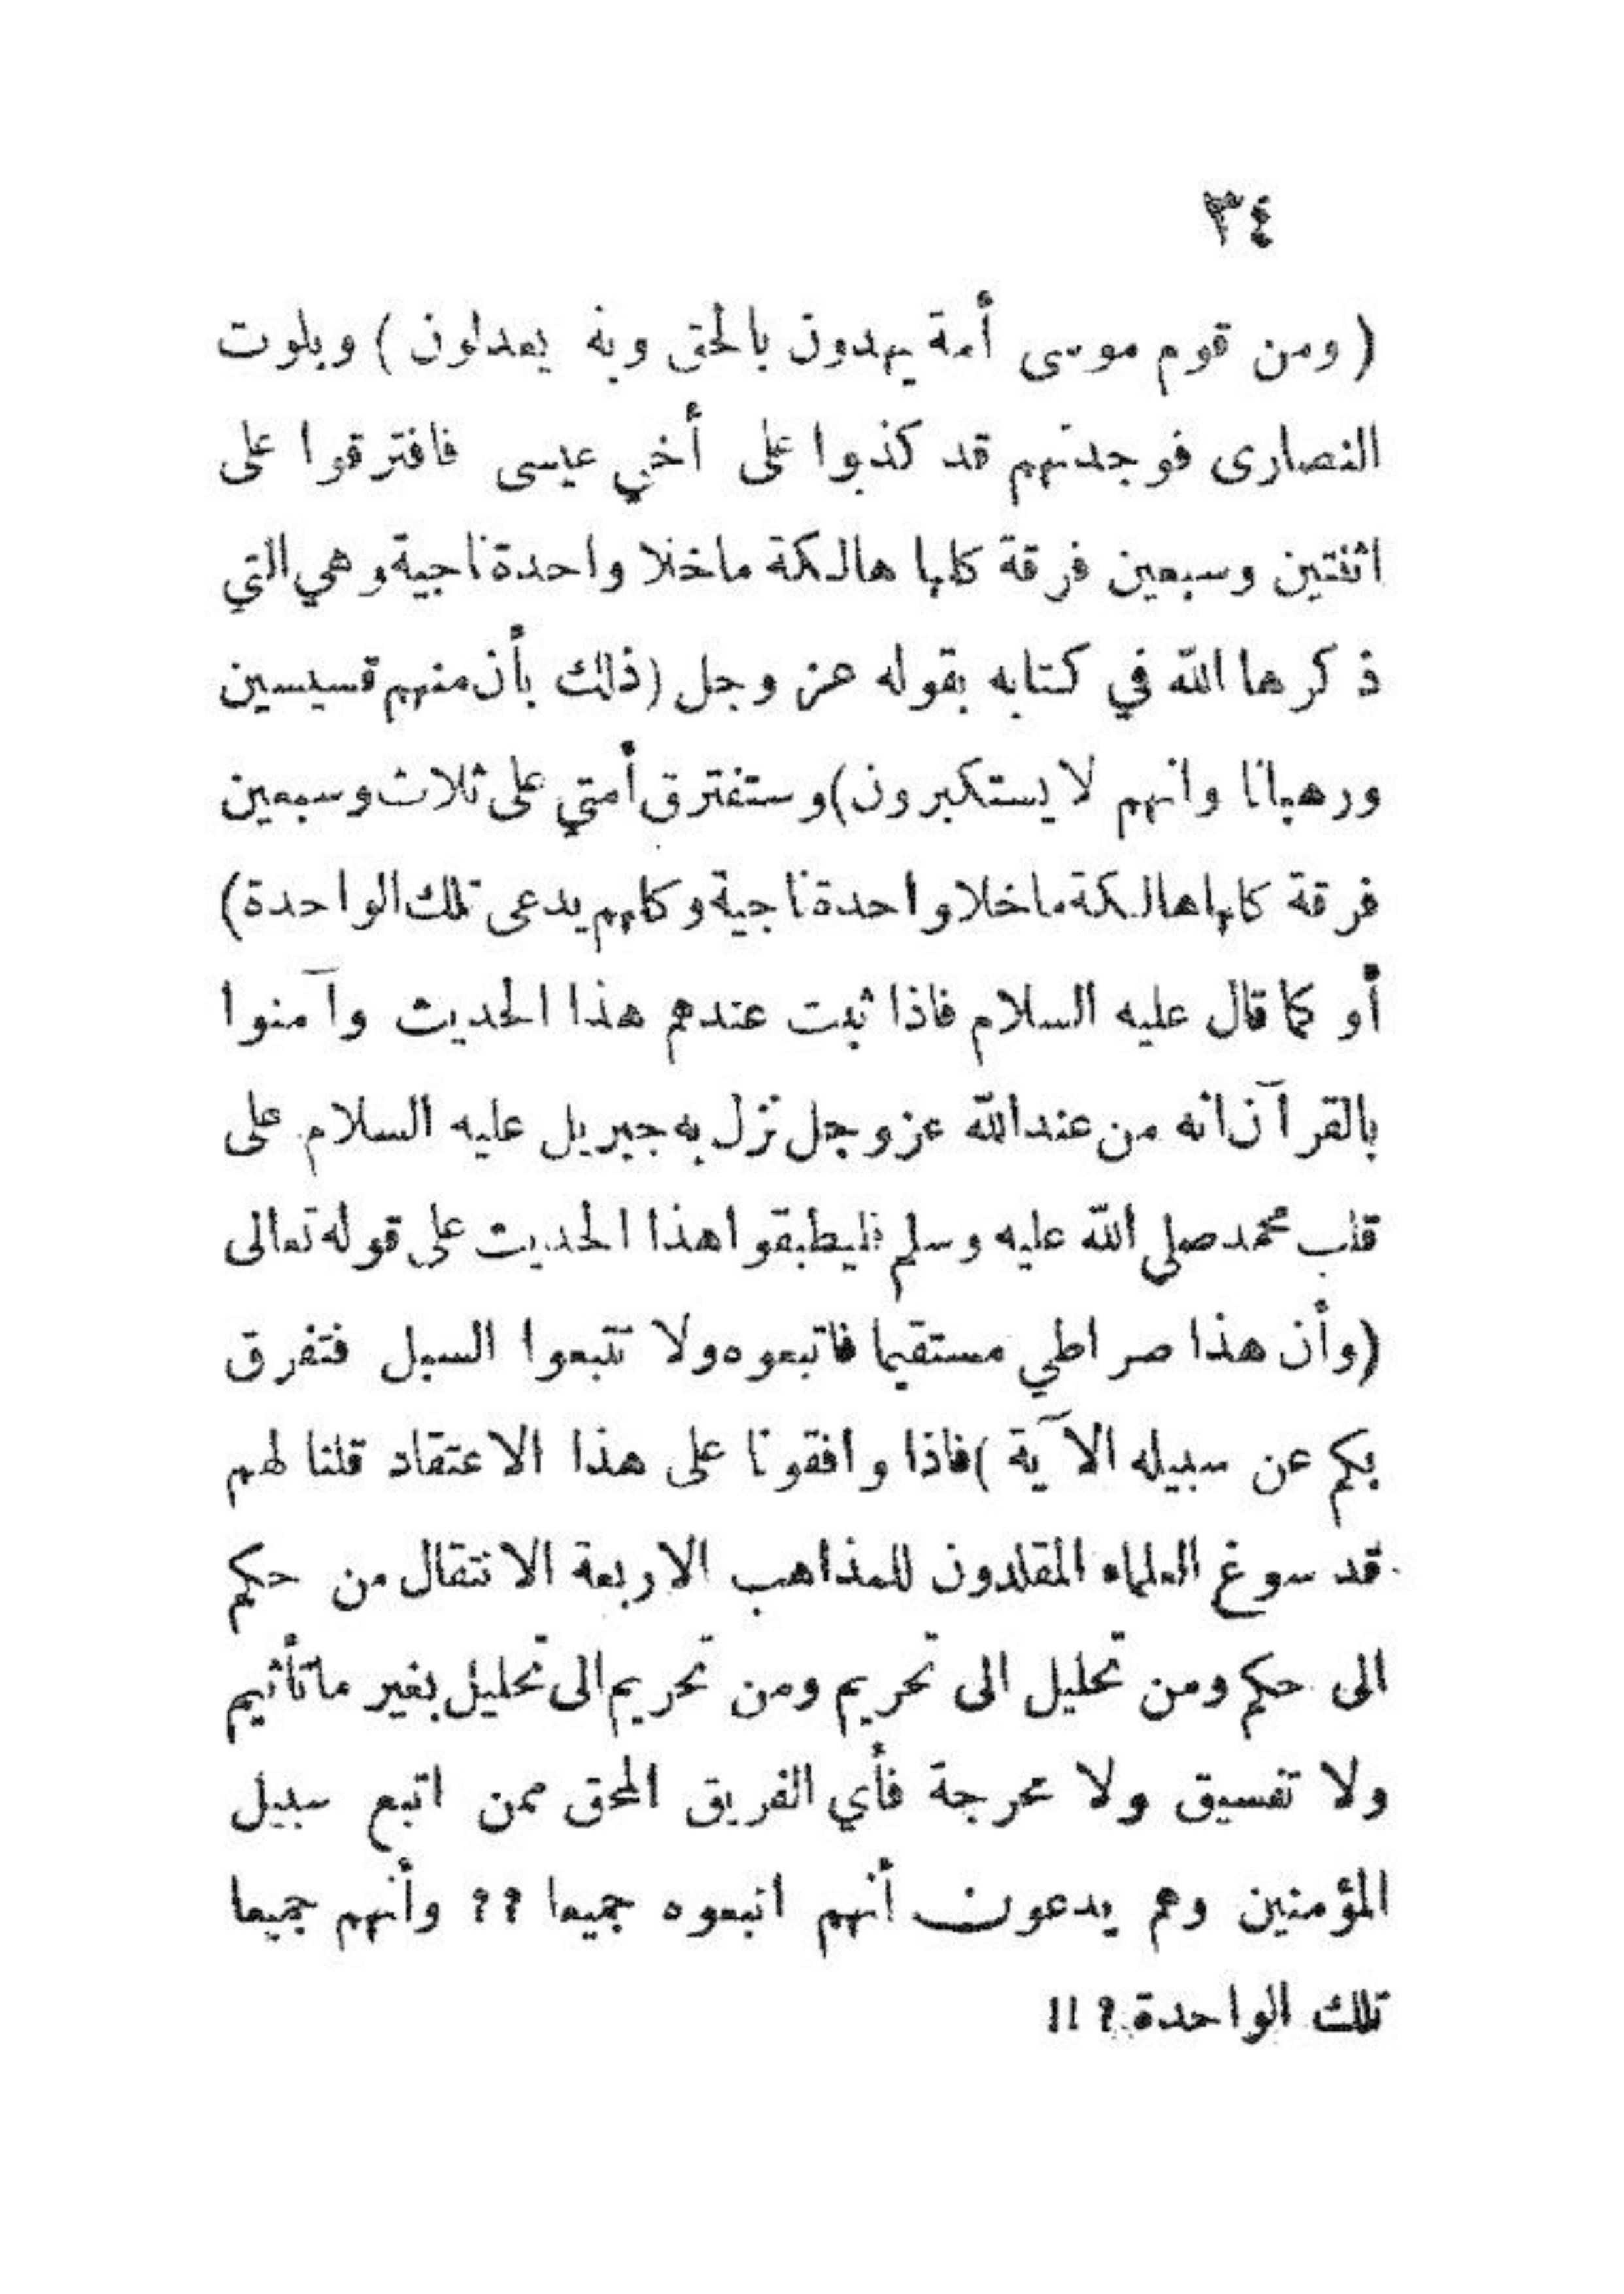 ٣٤
( ومن قوم موسى أمة يهدون بالحق وبه يعدلون ) وبلوت
النصارى فوجدتهم قد كذبوا على أخي عيسى فافترقوا على
اثنتين وسبعين فرقة كلها هالكة ماخلا واحدة ناجية وهي التي
ذكرها الله في كتابه بقوله عز وجل (ذلك بأن منهم قسيسين
ورهبانا وانهم لا يستكبرون) وستفترق أمتي على ثلاث وسبعين
فرقة كلها هالكة ماخلا واحدة ناجية وكلهم يدعى تلك الواحدة)
أو كما قال عليه السلام فاذا ثبت عندهم هذا الحديث وآمنوا
بالقرآن انه من عند الله عز وجل نزل به جبريل عليه السلام على
قلب محمد صلى الله عليه وسلم فليطبقوا هذا الحديث على قوله تعالى
(وأن هذا صراطي مستقيما فاتبعوه ولا تتبعوا السبل فتفرق
بكم عن سبيله الآية ) فاذا وافقونا على هذا الاعتقاد قلنا لهم
قد سوغ العلماء المقلدون للمذاهب الاربعة الانتقال من حكم
الى حكم ومن تحليل الى تحريم ومن تحريم الى تحليل بغير ما تأثيم
ولا تفسيق ولا محرجة فأي الفريق المحق ممن اتبع سبيل
المؤمنين وهم يدعون أنهم اتبعوه جميعا ؟؟ وأنهم جميعا
تلك الواحدة ؟ !!